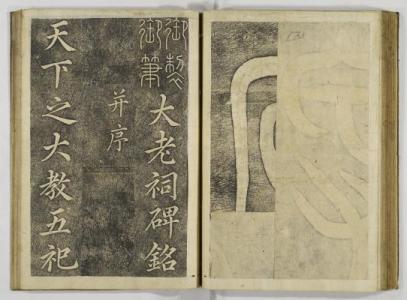 御製
御筆
大老祠碑銘
并序
天下之大教五祀